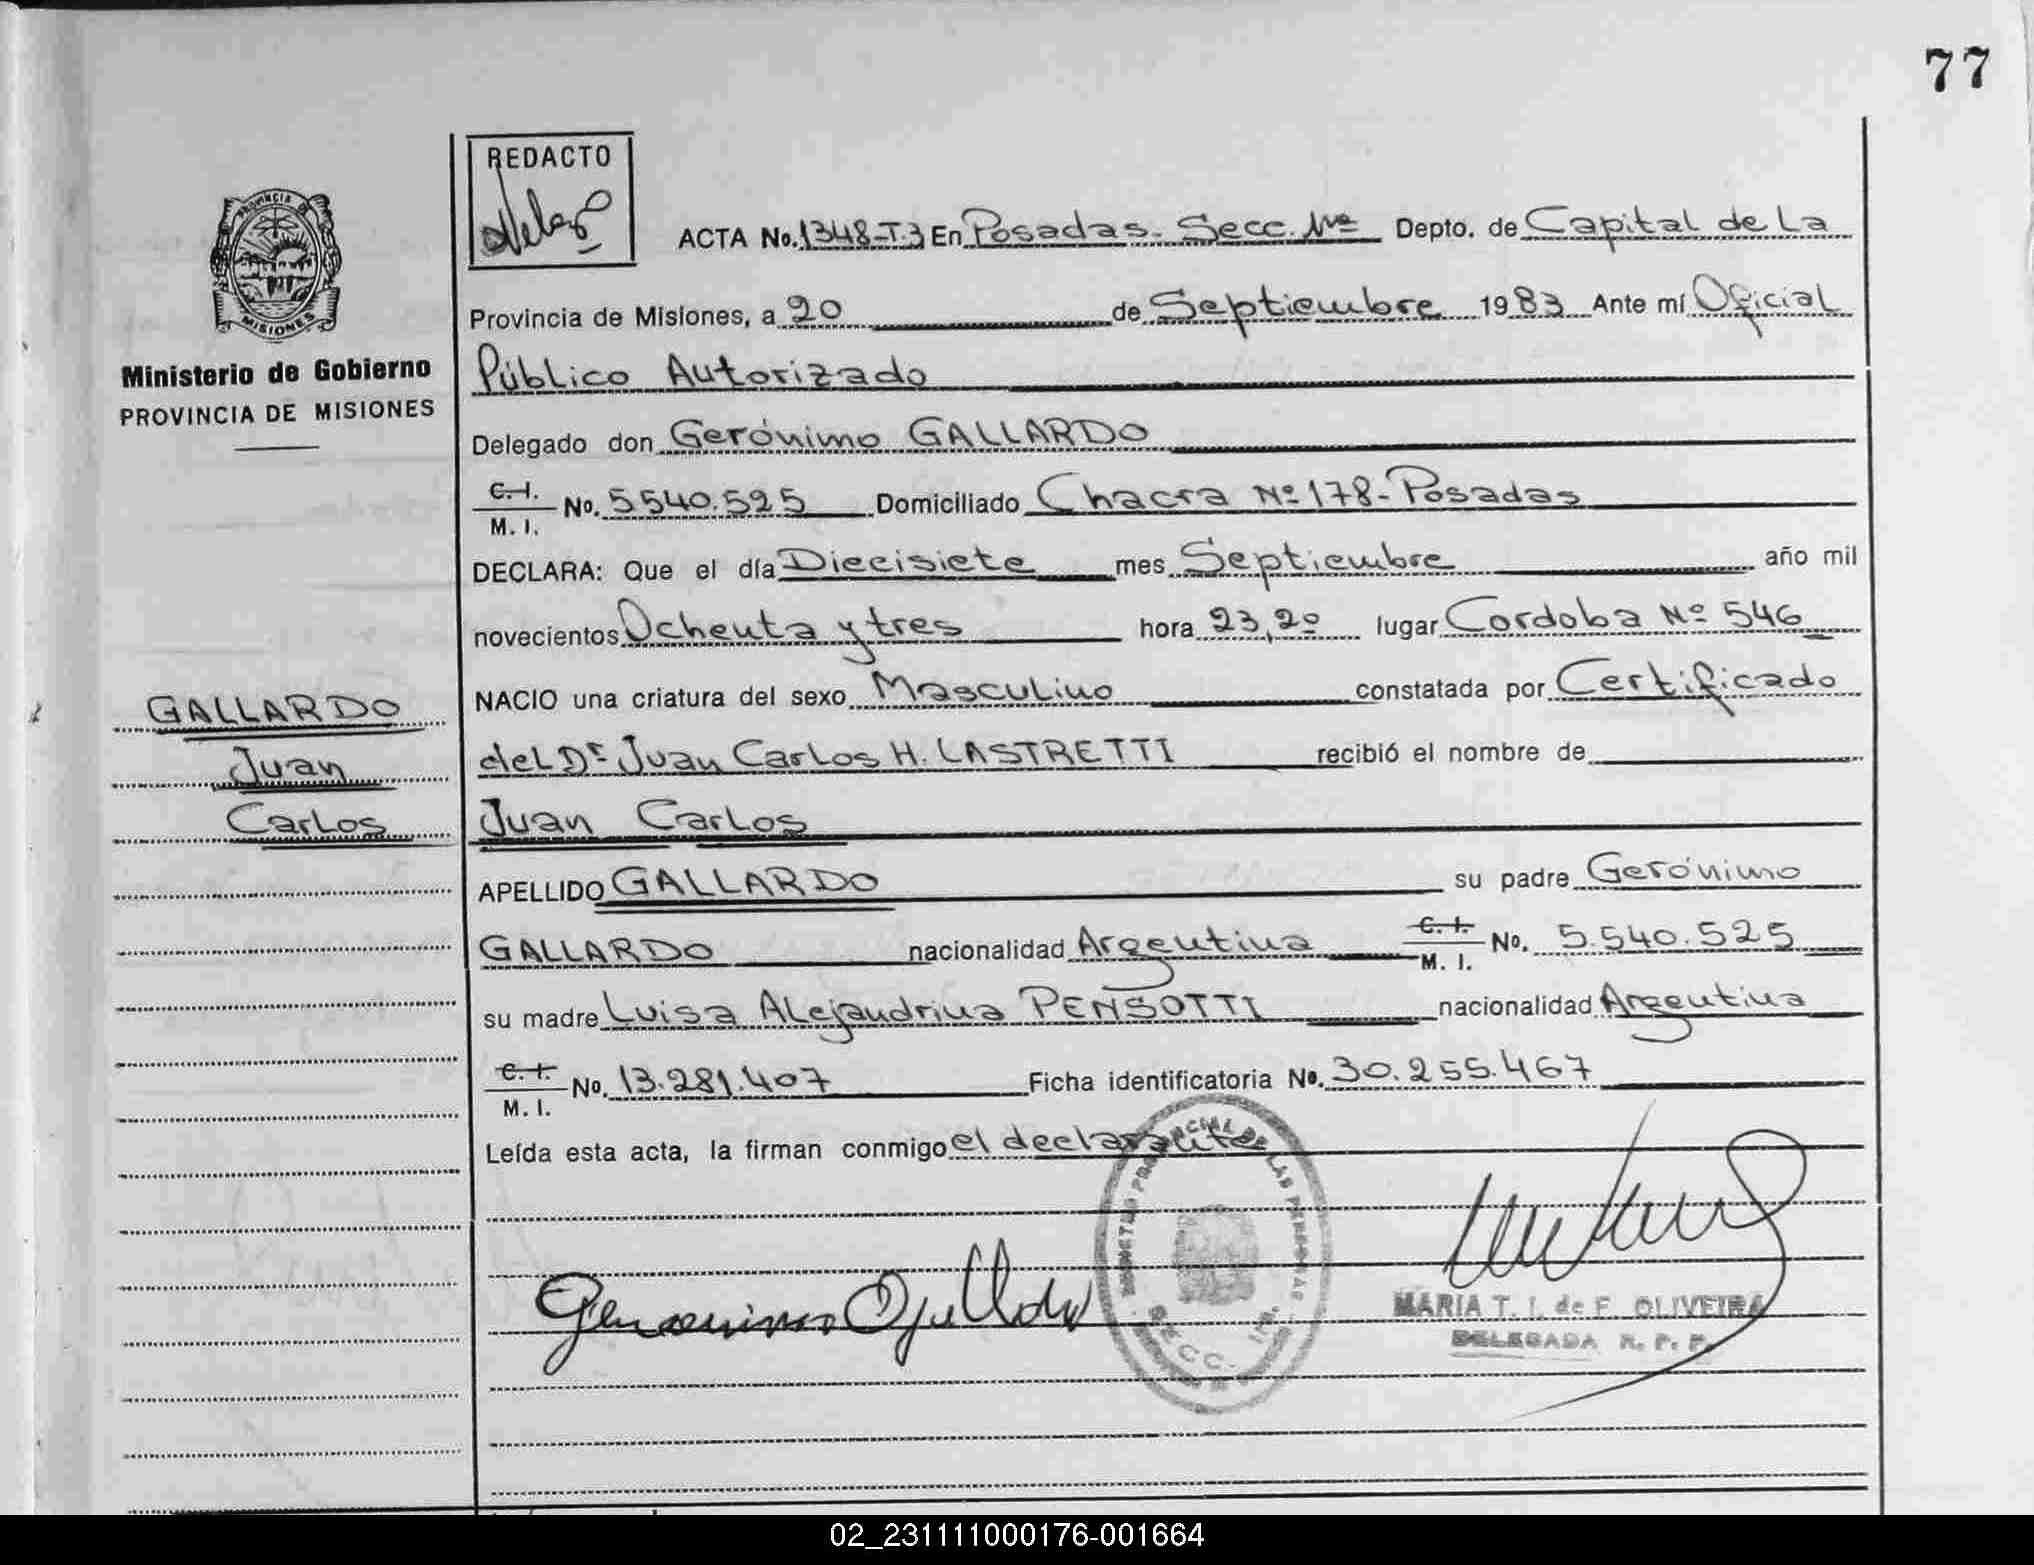 77
REDACTO
ACTA No. 1348-T.3 En Posadas. Secc. 1ra Depto. de Capital de La
Provincia de Misiones, a 20 de Septiembre 1983 Ante mí Oficial
Público Autorizado
Delegado don Gerónimo GALLARDO
C. I. M. I. No. 5540.525 Domiciliado Chacra Nº 178-Posadas
DECLARA: Que el día Diecisiete mes Septiembre año mil
novecientos Ochenta y tres hora 23,20 lugar Cordoba Nº 546
NACIO una criatura del sexo Masculino constatada por Certificado
del Dr Juan Carlos H. LASTRETTI recibió el nombre de
Juan Carlos
APELLIDO GALLARDO su padre Gerónimo
GALLARDO nacionalidad Argentina C. I. M. I. No. 5.540.525
su madre Luisa Alejandrina PENSOTTI nacionalidad Argentina
C. I. M. I. No. 13.281.407 Ficha identificatoria No. 30.255.467
Leída esta acta, la firman conmigo el declarante
MARIA T. I. de F. OLIVEIRA
DELEGADA R. P. P.
PROVINCIA DE
MISIONES
Ministerio de Gobierno
PROVINCIA DE MISIONES
GALLARDO
Juan
Carlos
02_231111000176-001664